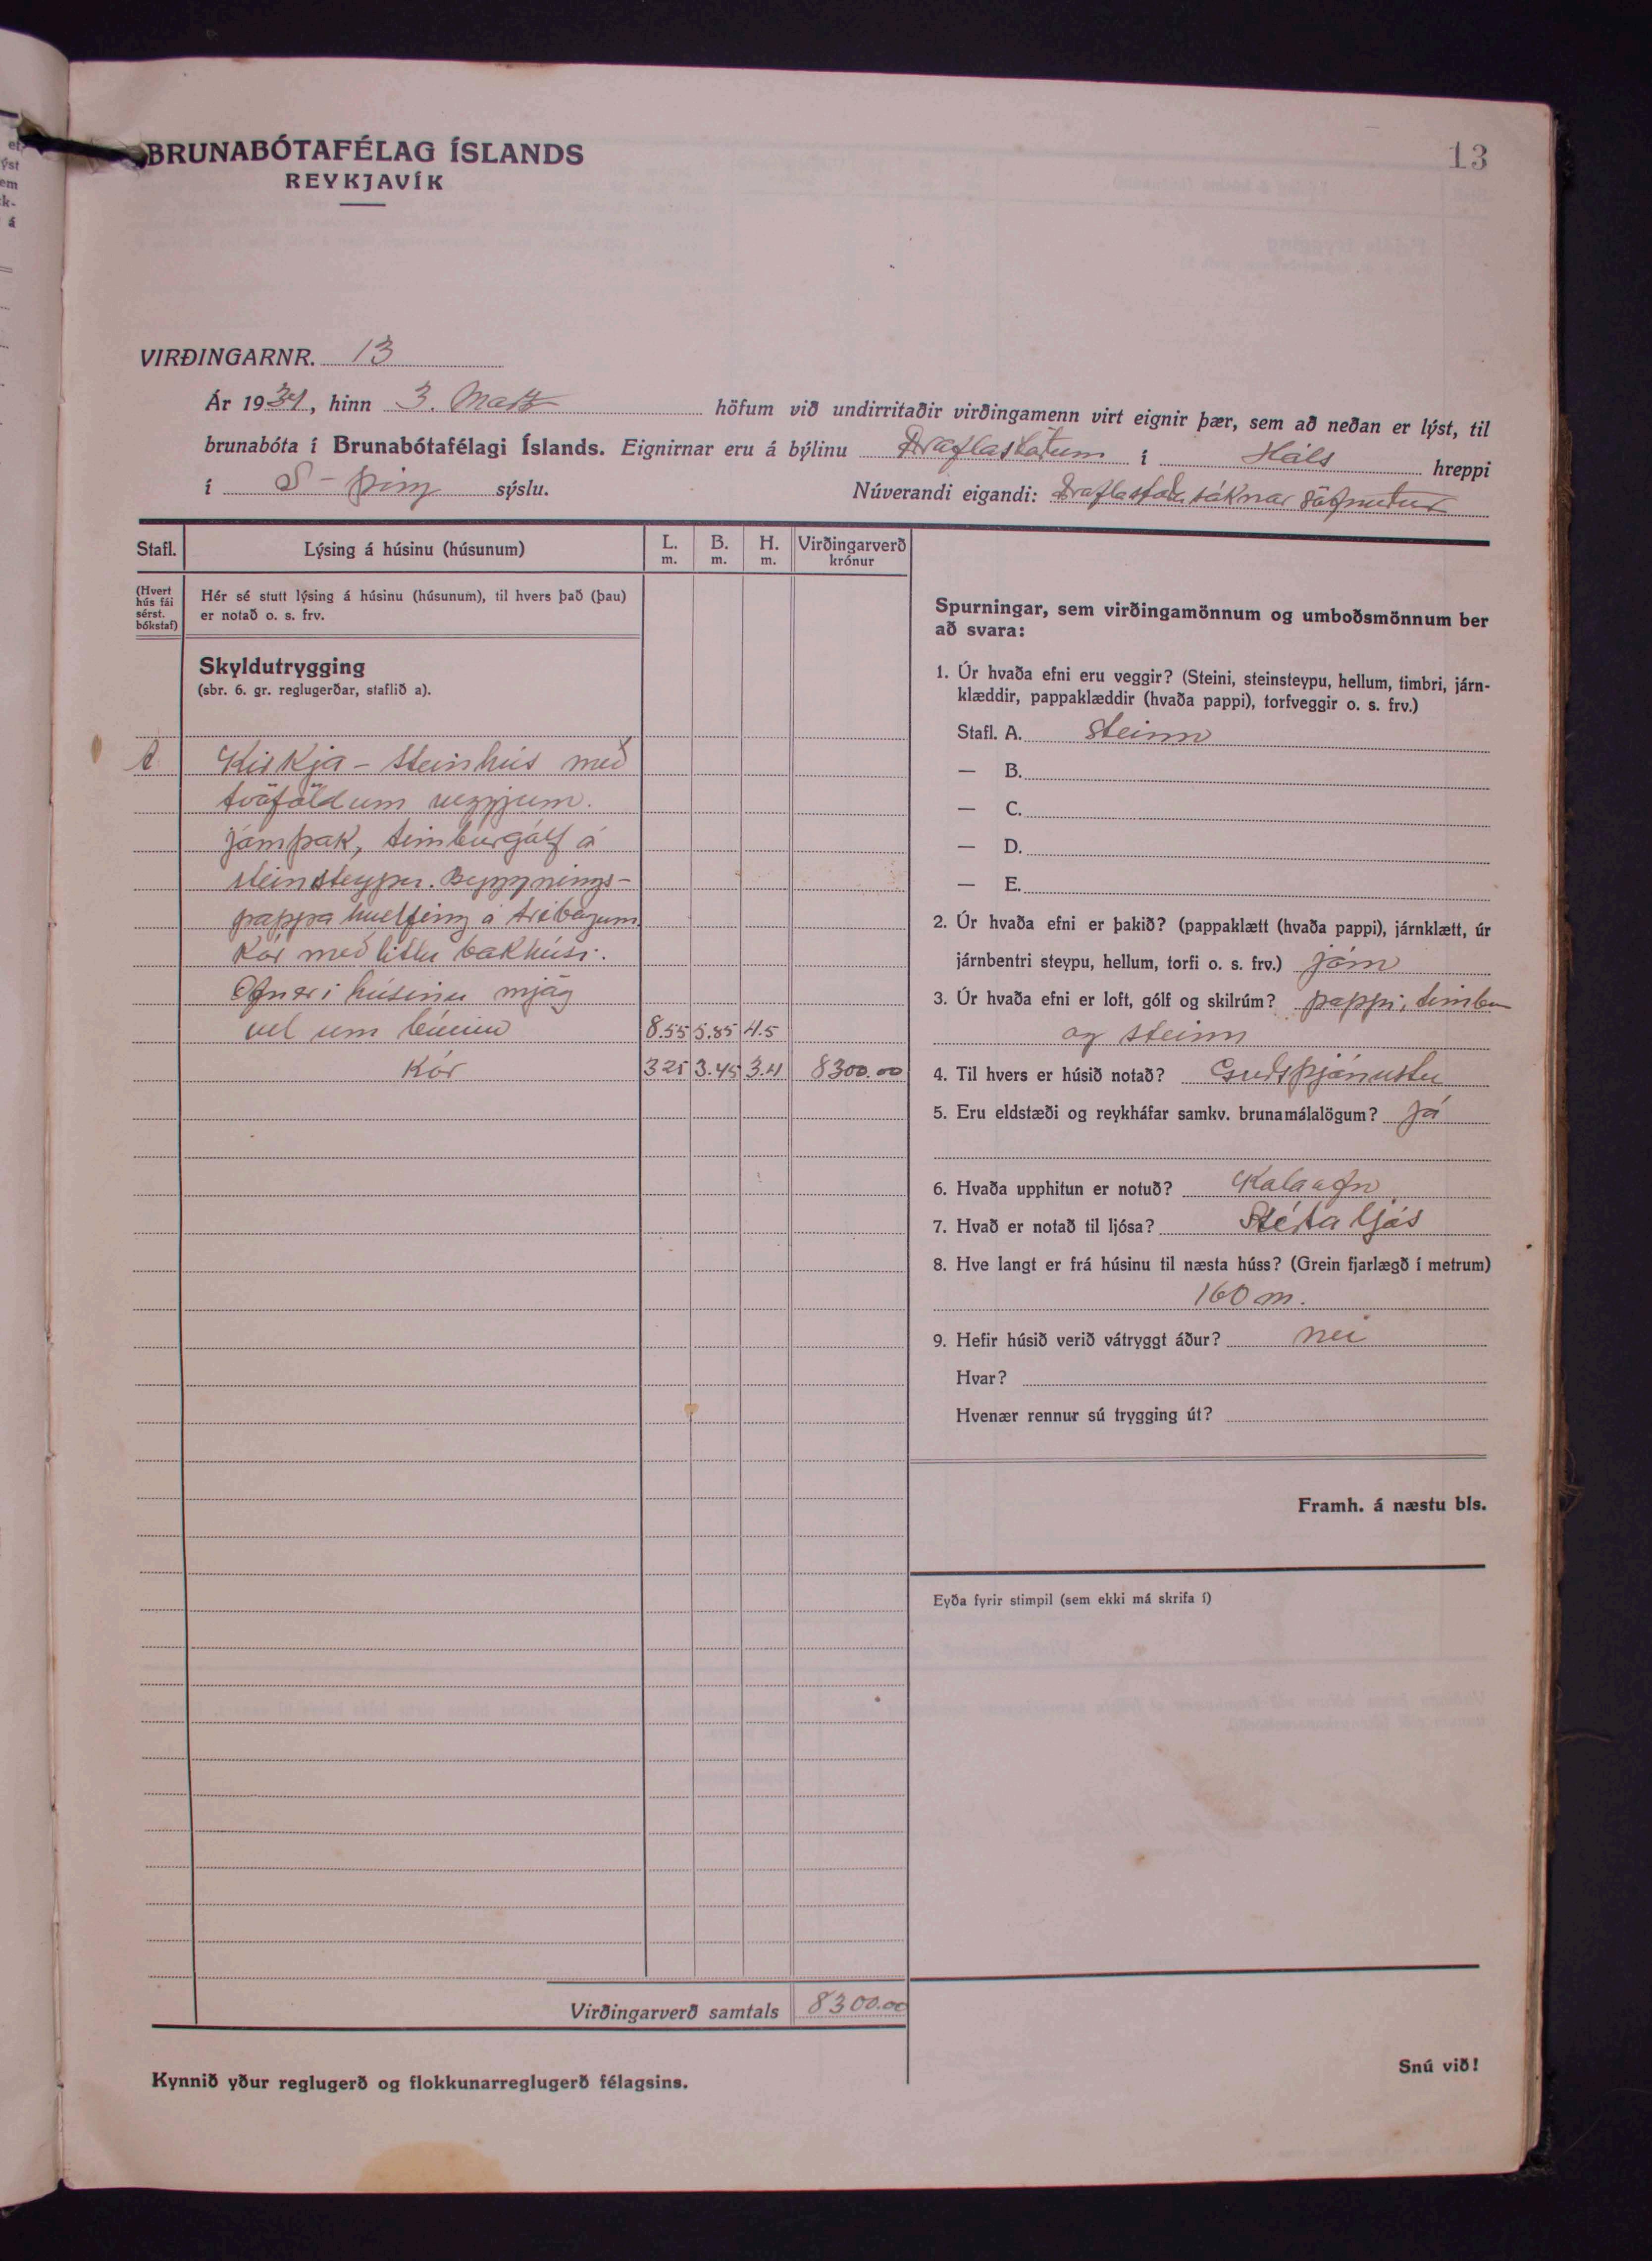 13
BRUNABÓTAFÉLAG ÍSLANDS
REYKJAVÍK
VIRÐINGARNR. 13
Ár 1934, hinn 3. Marz höfum við undirritaðir virðingamenn virt eignir þær, sem að neðan er lýst, til
brunabóta í Brunabótafélagi Íslands. Eignirnar eru á býlinu Draflastöðum í Háls hreppi
í S-Þing sýslu. Núverandi eigandi: Draflastaða sóknar söfnuður
Stafl. Lýsing á húsinu (húsunum) L. m. B. m. H. m. Virðingarverð krónur
(Hvert hús fái sérst. bókstaf)
Hér sé stutt lýsing á húsinu (húsunum), til hvers það (þau)
er notað o. s. frv.
Skyldutrygging
(sbr. 6. gr. reglugerðar, staflið a).
A Kirkja - Steinhús með
tvöföldum veggjum.
járnþak, timburgólf á
steinsteypu. Byggnings-
pappa hvelfing á trébogum
Kór með litlu bakhúsi.
Ofn er í húsinu mjög
vel um búinn 8.55 5.85 4.5
Kór 3.25 3.45 3.4 8300.00
Virðingarverð samtals 8300.00
Kynnið yður reglugerð og flokkunarreglugerð félagsins.
Spurningar, sem virðingamönnum og umboðsmönnum ber
að svara:
1. Úr hvaða efni eru veggir? (Steini, steinsteypu, hellum, timbri, járn-
klæddir, pappaklæddir (hvaða pappi), torfveggir o. s. frv.)
Stafl. A. Steinn
— B.
— C.
— D.
— E.
2. Úr hvaða efni er þakið? (pappaklætt (hvaða pappi), járnklætt, úr
járnbentri steypu, hellum, torfi o. s. frv.) járn
3. Úr hvaða efni er loft, gólf og skilrúm? pappi, timbur
og steinn
4. Til hvers er húsið notað? Guðsþjónustu
5. Eru eldstæði og reykháfar samkv. brunamálalögum? Já
6. Hvaða upphitun er notuð? Kolaofn
7. Hvað er notað til ljósa? Stérta ljós
8. Hve langt er frá húsinu til næsta húss? (Grein fjarlægð í metrum)
160 m.
9. Hefir húsið verið vátryggt áður? nei
Hvar?
Hvenær rennur sú trygging út?
Framh. á næstu bls.
Eyða fyrir stimpil (sem ekki má skrifa í)
Snú við!